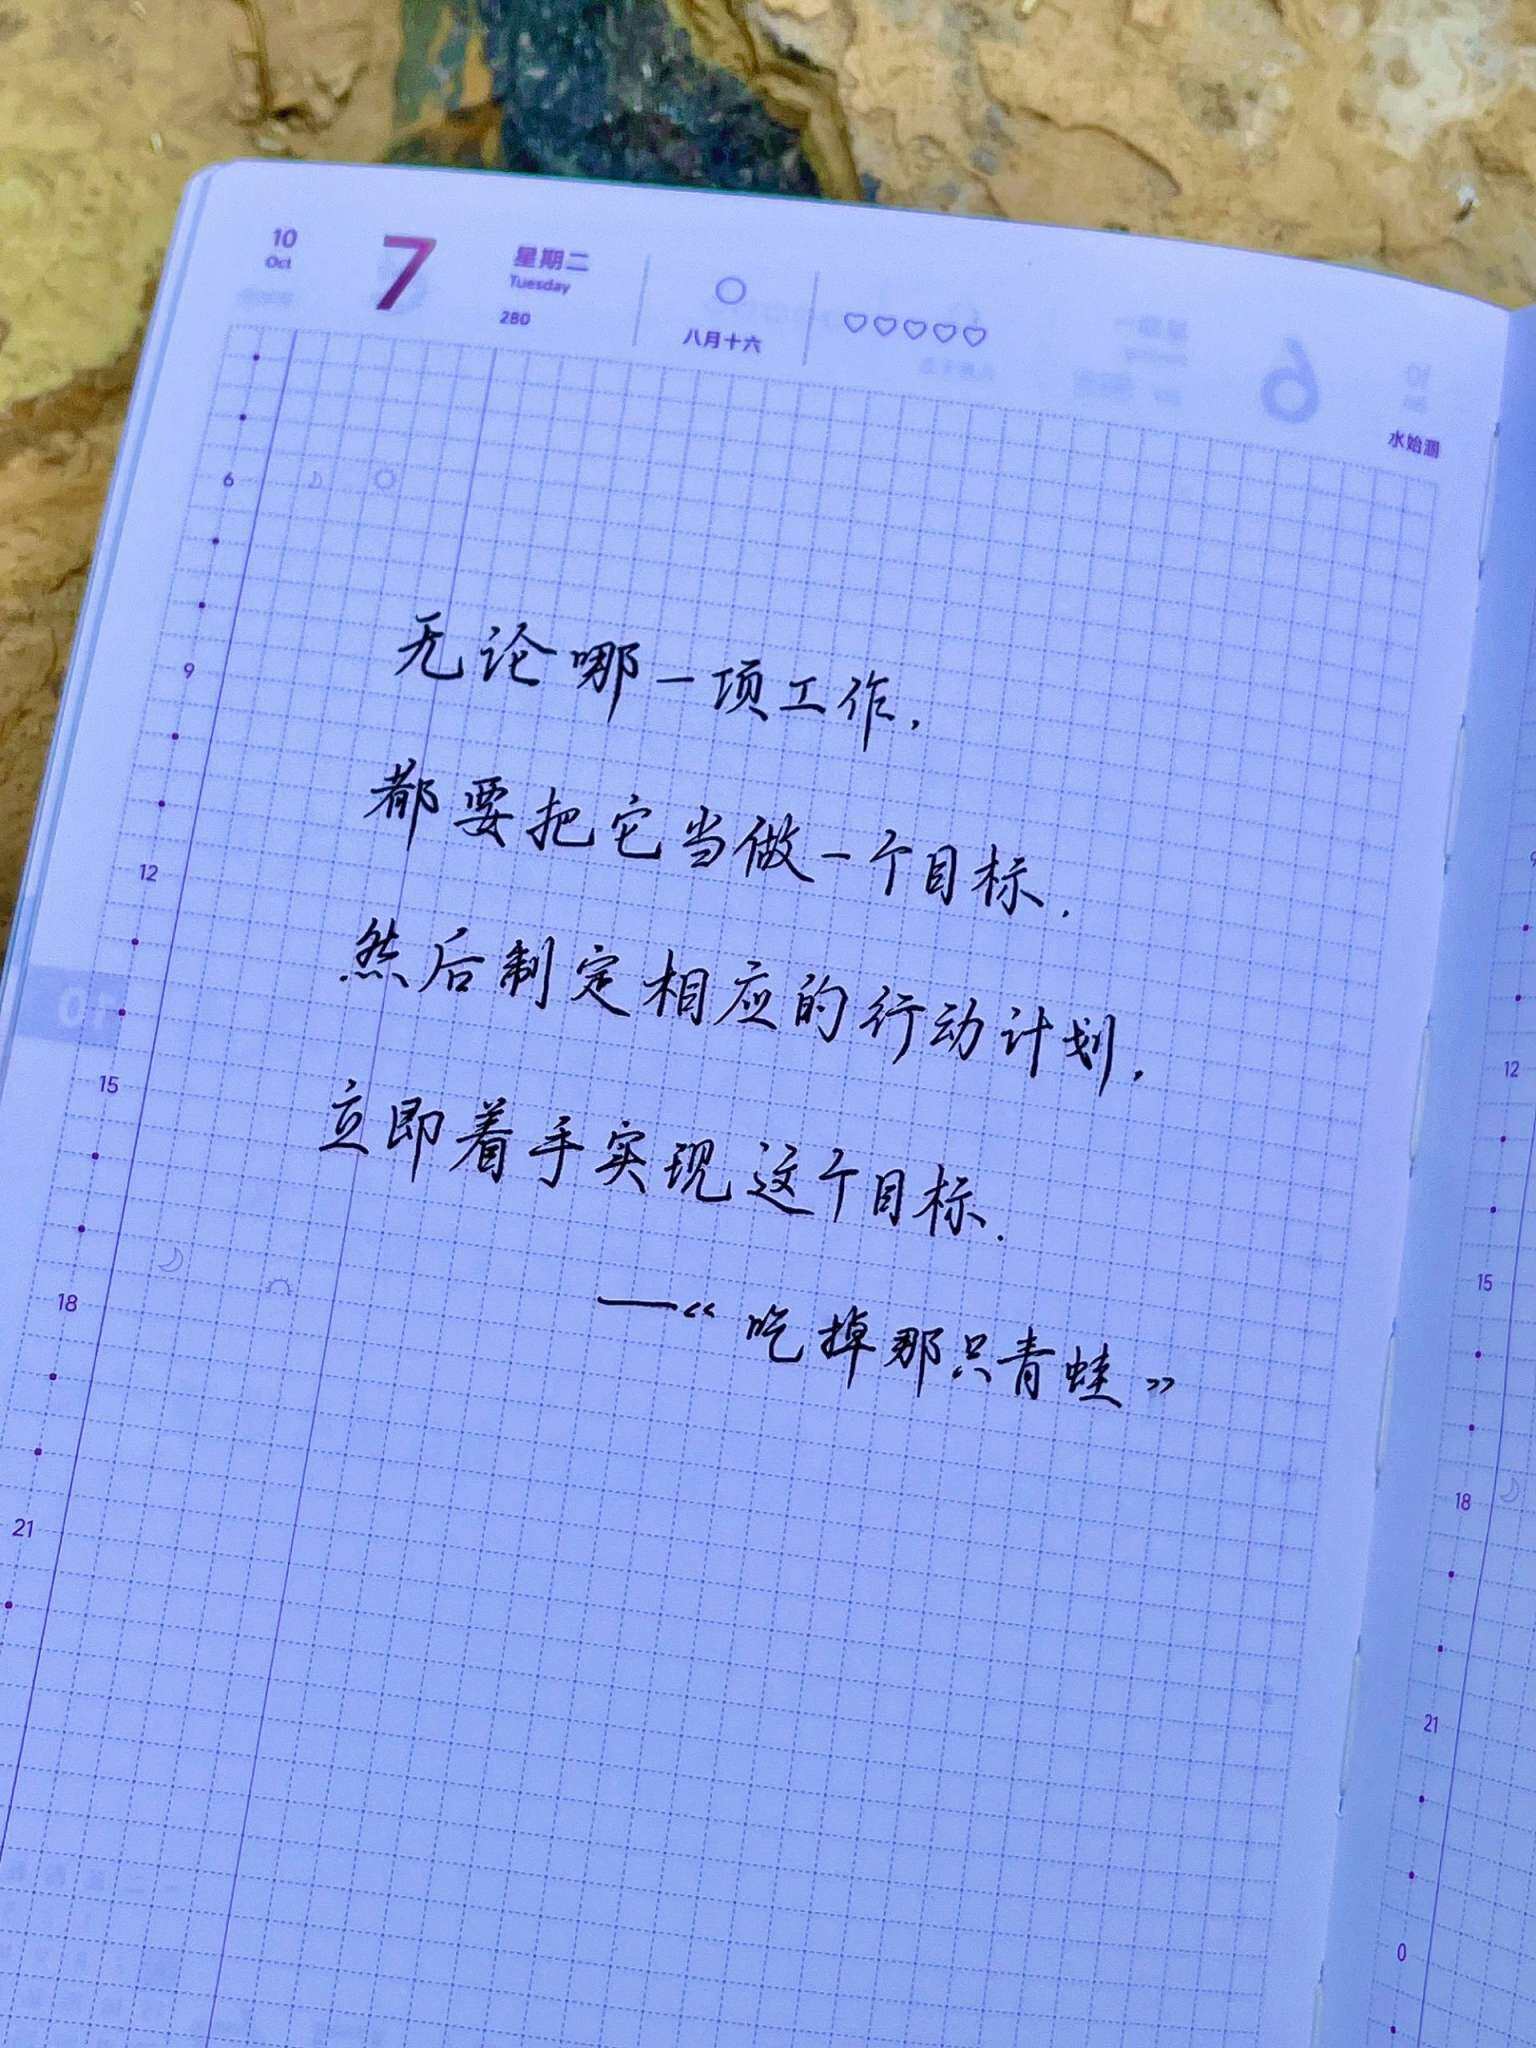 10
Oct
7
星期二
Tuesday
280
八月十六
水始涸
6
9
12
15
18
21
无论哪一项工作,
都要把它当做一个目标.
然后制定相应的行动计划,
立即着手实现这个目标.
——“吃掉那只青蛙”
12
15
18
21
0